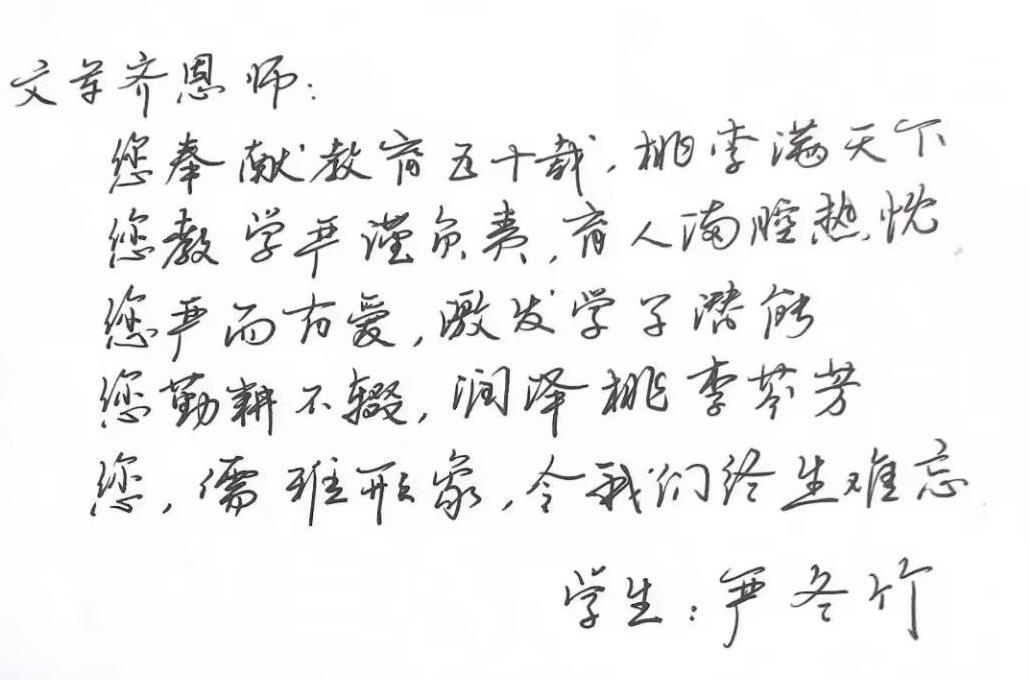 文齐恩师:
您奉献教育五十载,桃李满天下
您教学严谨负责,育人满腔热忱
您严而有爱,激发学子潜能
您勤耕不辍,润泽桃李芬芳
您,儒雅形象,令我们终生难忘
学生:严冬竹